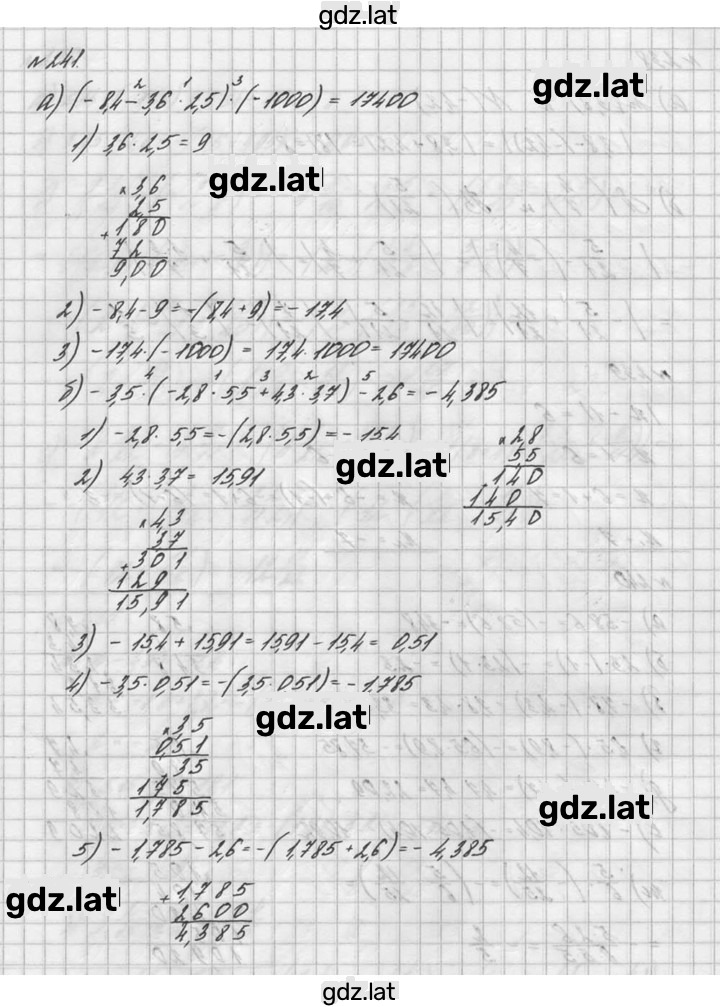 gdz.lat
№ 241.
gdz.lat
2 1 3
а) (-8,4-3,6·2,5)·(-1000) = 17400
1) 3,6·2,5=9
gdz.lat
×3,6
2,5
+180
72
9,00
2) -8,4-9=-(8,4+9)=-17,4
3) -17,4·(-1000) = 17,4·1000=17400
4 1 3 2 5
б) -3,5·(-2,8·5,5+4,3·3,7)-2,6=-4,385
1) -2,8·5,5=-(2,8·5,5)=-15,4
×2,8
55
140
140
15,40
gdz.lat
2) 4,3·3,7= 15,91
×4,3
37
+301
129
15,91
3) -15,4+15,91=15,91-15,4= 0,51
4) -3,5·0,51=-(3,5·0,51)=-1,785
gdz.lat
×3,5
0,51
35
175
1,785
gdz.lat
5) -1,785-2,6=-(1,785+2,6)=-4,385
gdz.lat
+1,785
2600
4,385
gdz.lat